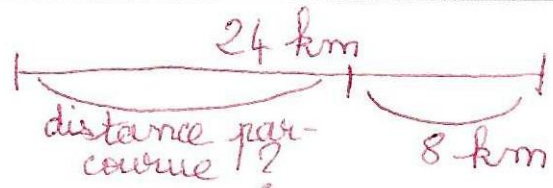 24 km
distance par-
courue ?
8 km